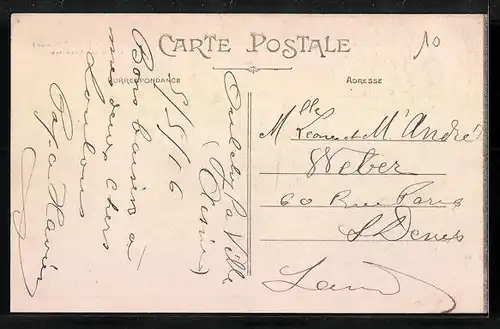 CARTE POSTALE
CORRESPONDANCE
ADRESSE
10
Oulchy la Ville
(Aisne)
5/5/16
Bons baisers à
mes deux chers
Loulous
Papa
Mlle Léone et M' André
Weber
60 Rue Paris
St Denis